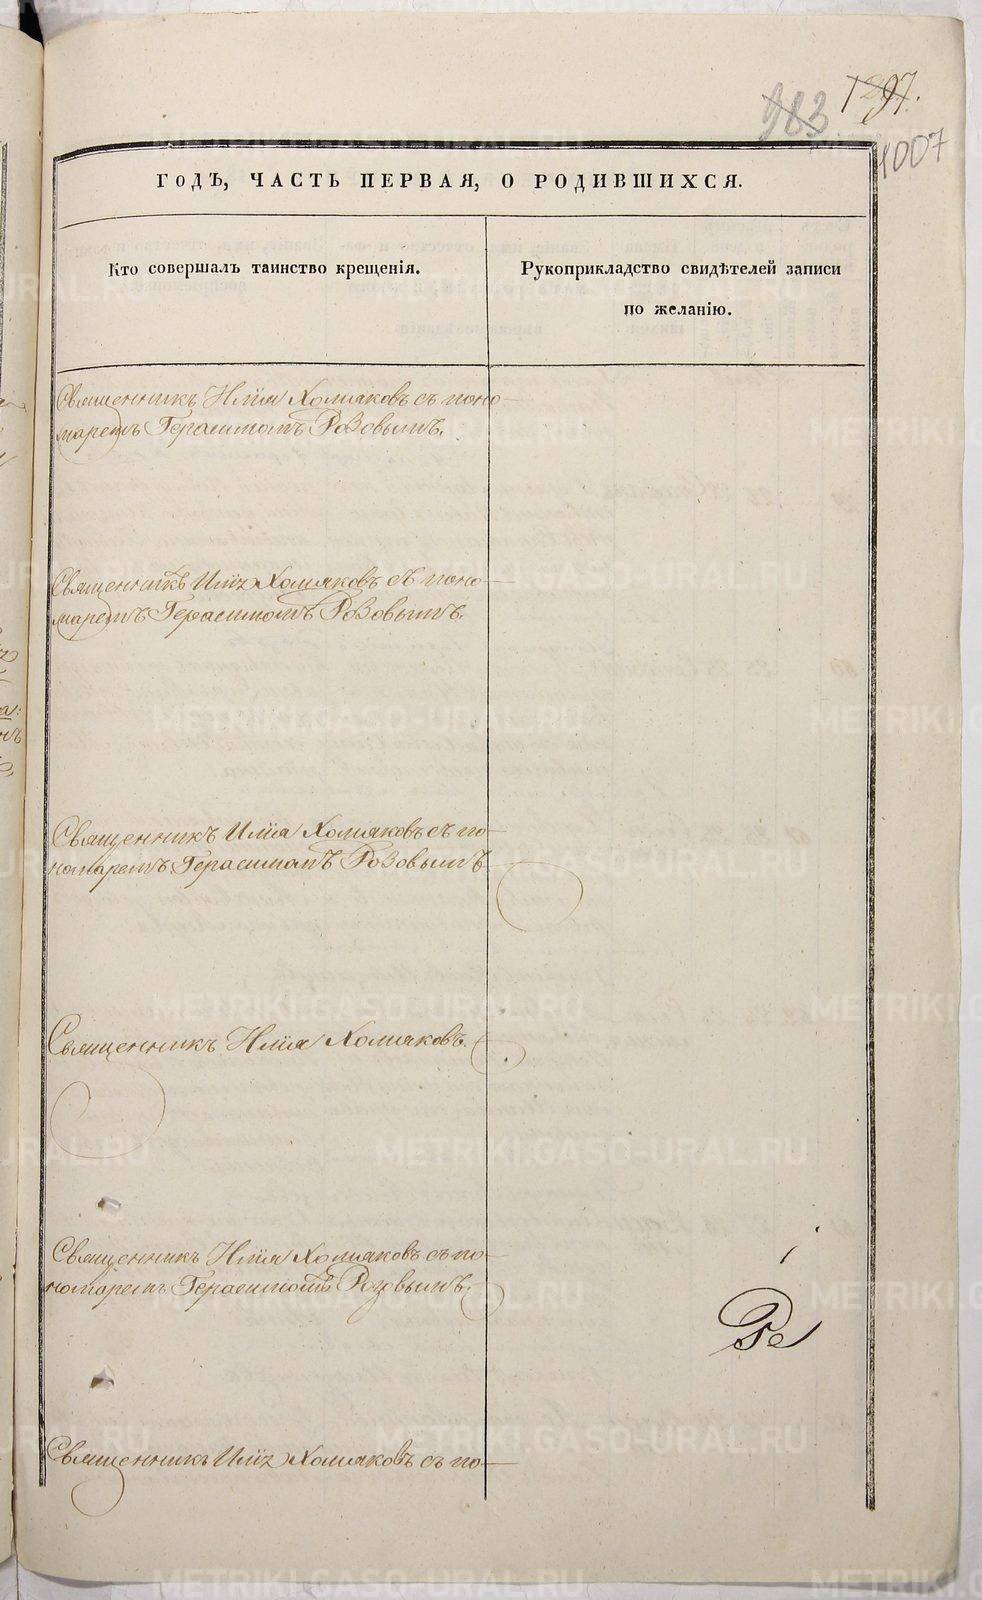 983 1297.
1007
ГОДЪ, ЧАСТЬ ПЕРВАЯ, О РОДИВШИХСЯ.
Кто совершалъ таинство крещенія.
Рукоприкладство свидѣтелей записи
по желанію.
Священникъ Илія Хомяковъ съ поно-
маремъ Герасимомъ Розовымъ.
Священникъ Илія Хомяковъ съ поно-
маремъ Герасимомъ Розовымъ.
Священникъ Илія Хомяковъ съ по-
номаремъ Герасимомъ Розовымъ
Священникъ Илія Хомяковъ.
Священникъ Илія Хомяковъ съ по-
номаремъ Герасимомъ Розовымъ.
Священникъ Илія Хомяковъ съ по-
METRIKI.GASO-URAL.RU